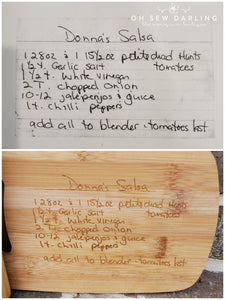 OH SEW DARLING
Donna's Salsa
1 28oz & 1 15½oz petite diced Hunts
tomatoes
½ t. Garlic salt
1 ½ t. White vinegar
2 T. chopped onion
10-12 jalepenjos & juice
1 t. chilli peppers
add all to blender - tomatoes last
Donna's Salsa
1 28oz & 1 15½oz petite diced Hunts
tomatoes
½ t. Garlic salt
1 ½ t. White vinegar
2 T. chopped onion
10-12 jalepenjos & juice
1 t. chilli peppers
add all to blender - tomatoes last